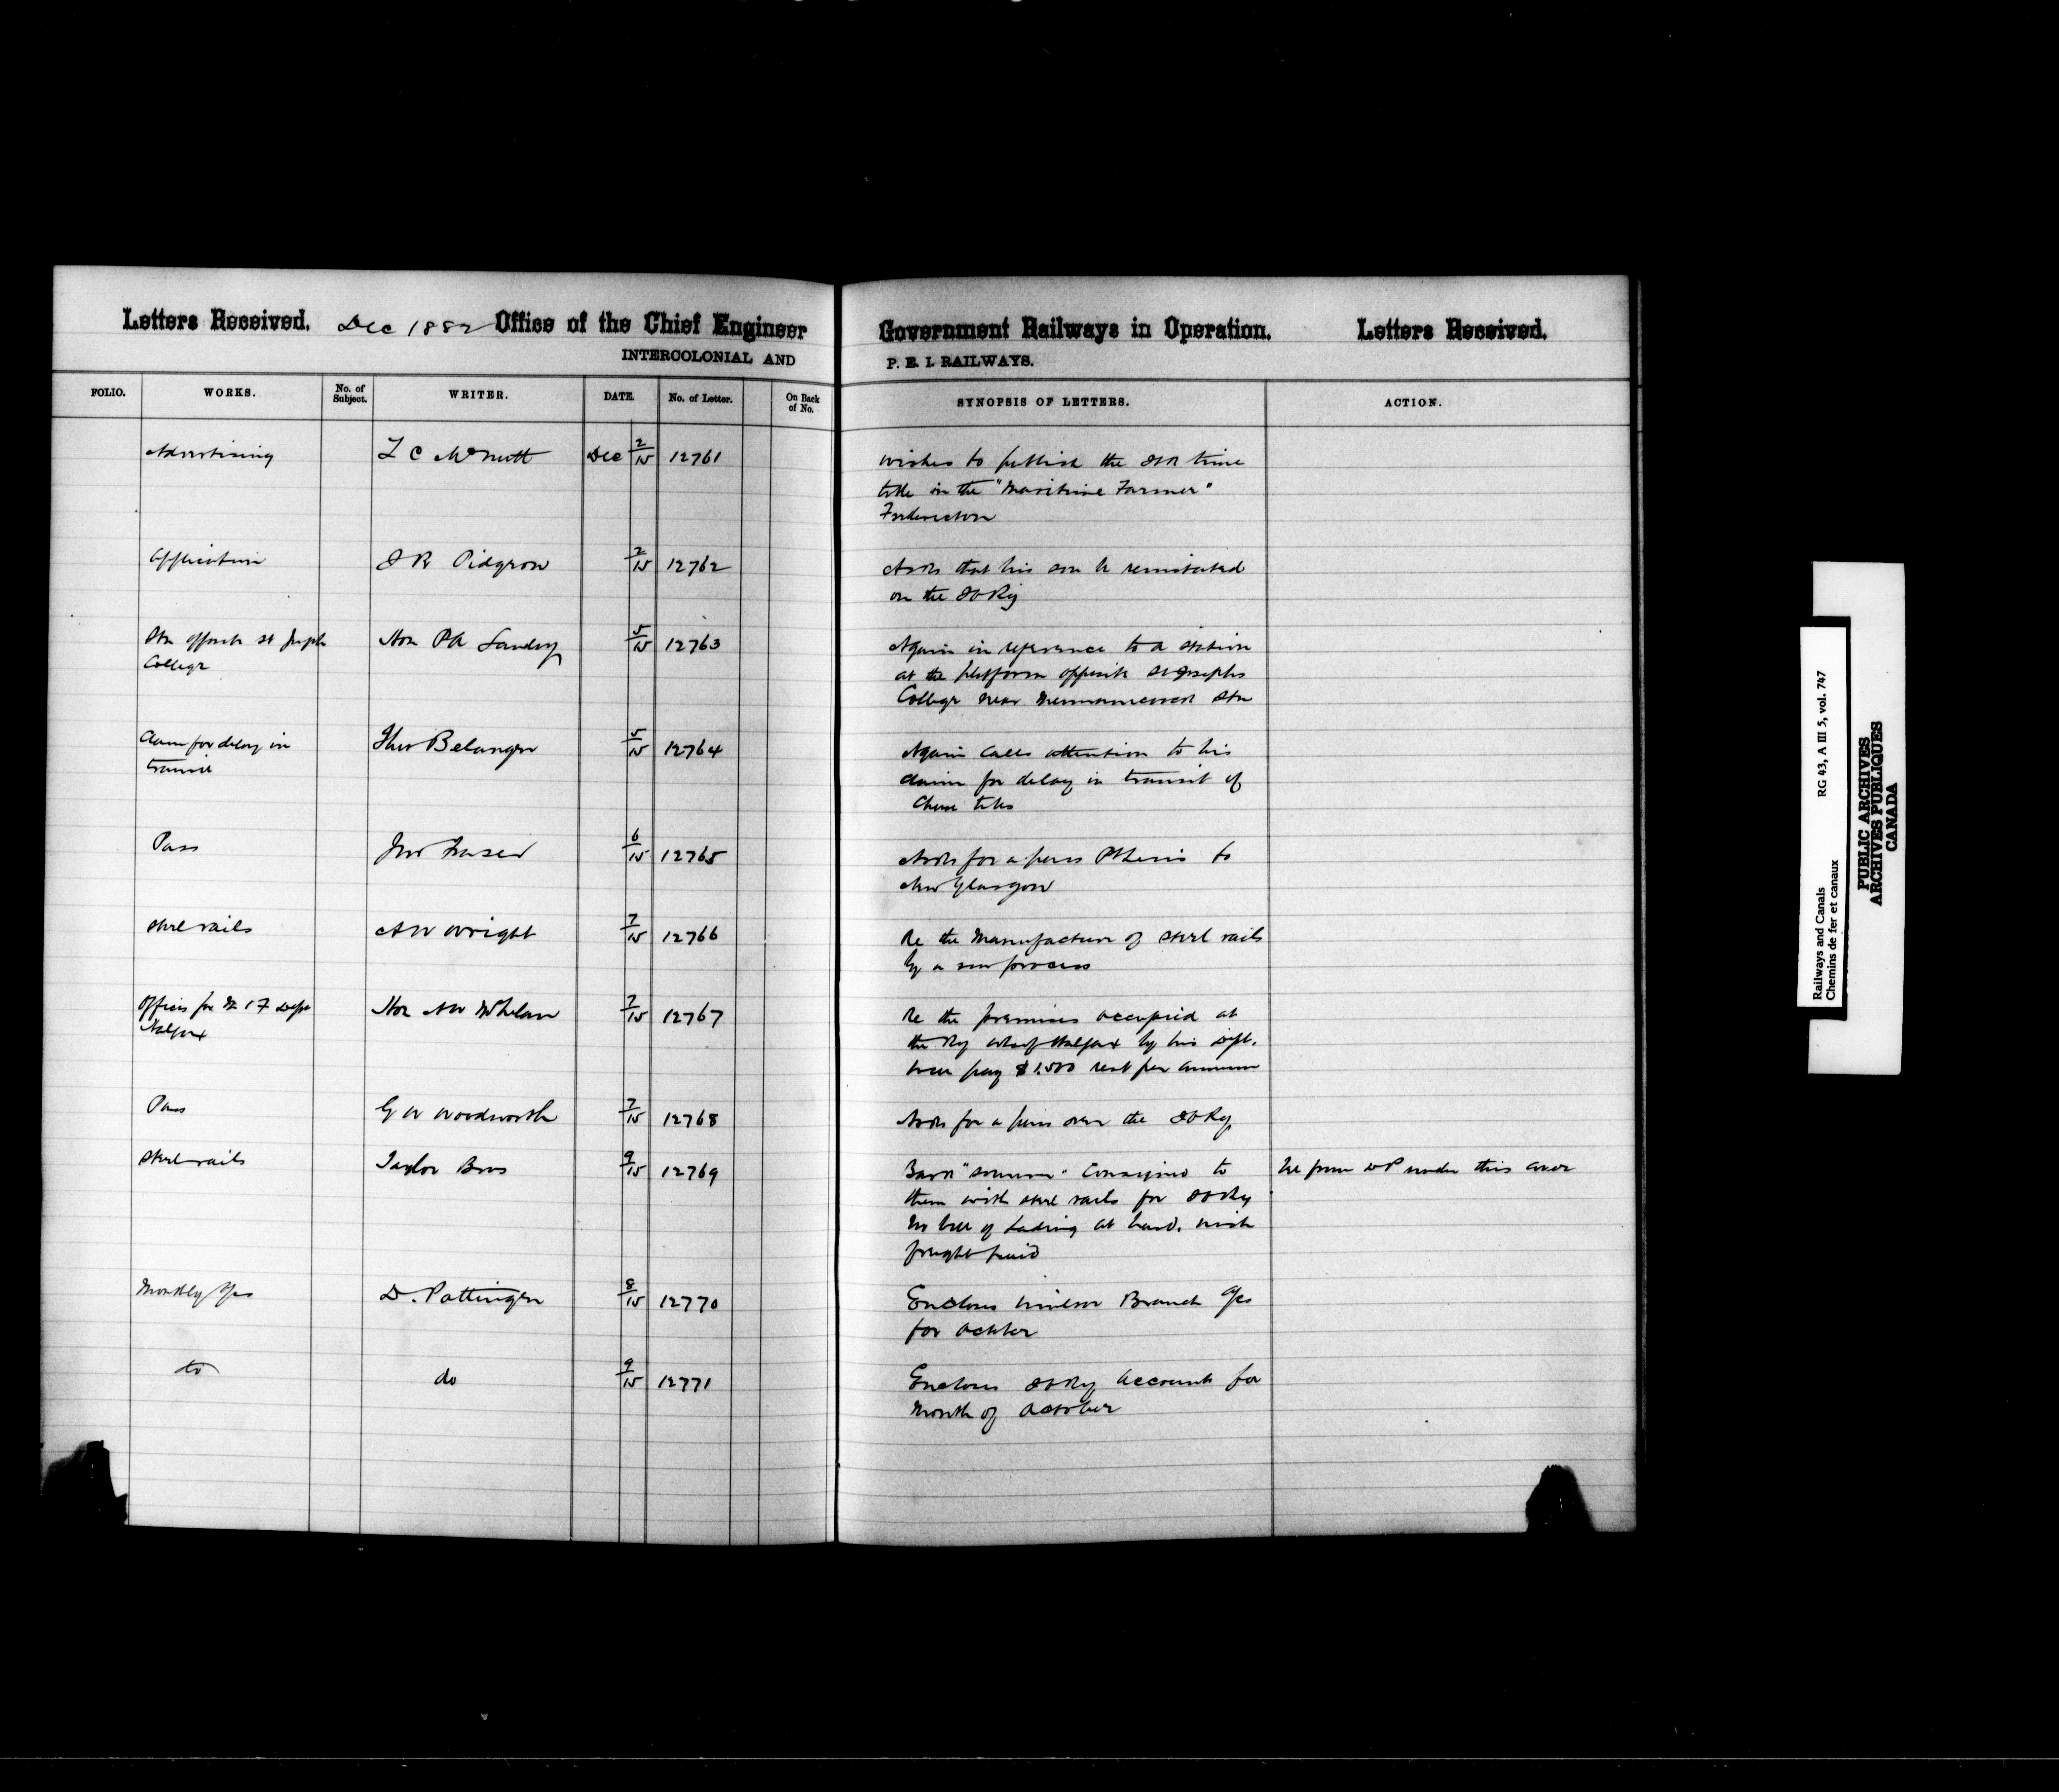 Letters Received. Dec 1882 Office of the Chief Engineer
INTERCOLONIAL AND
FOLIO. WORKS. No. of Subject. WRITER. DATE. No. of Letter. On Back of No.
Advertising L C McNutt Dec 2/15 12761
Application J R Pidgeon 2/15 12762
Stn opposite St Josephs Hon P A Landry 5/15 12763
College
Claim for delay in Thos Belanger 5/15 12764
transit
Pass Jno Fraser 6/15 12765
Steel rails A W Wright 7/15 12766
Offices for M & F Dept Hon A W McLelan 7/15 12767
Halifax
Pass G W Woodworth 7/15 12768
Steel rails Taylor Bros 9/15 12769
Monthly a/cs D. Pottinger 8/15 12770
do do 9/15 12771
Government Railways in Operation. Letters Received.
P. E. I. RAILWAYS.
SYNOPSIS OF LETTERS. ACTION.
wishes to publish the ICR time
table in the "Maritime Farmer"
Fredericton
Asks that his son be reinstated
on the ICRy
Again in reference to a station
at the platform opposite St Josephs
College near Memramcook Stn
Again calls attention to his
claim for delay in transit of
Cheese
Asks for a pass to
New Glasgow
Re the manufacture of steel rails
by a new process
Re the premises occupied at
the Ry wharf Halifax by his Dept.
will pay $1.500 rent per annum
Asks for a pass over the ICRy
Bark consigned to under this cover
them with steel rails for ICRy
No bill of Lading at hand. wish
freight paid
Encloses Windsor Branch a/cs
for October
Encloses ICRy accounts for
Month of October
Railways and Canals RG 43, A III 5, vol. 747
Chemins de fer et canaux
PUBLIC ARCHIVES
ARCHIVES PUBLIQUES
CANADA